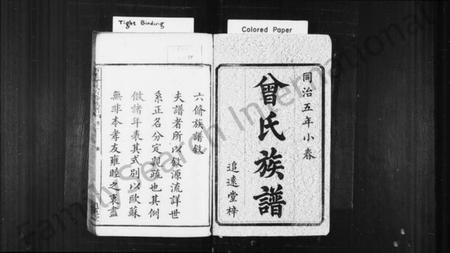 Tight Binding
Colored Paper
同治五年小春
曾氏族譜
追遠堂梓
六脩族譜敘
夫譜者所以敘源流詳世
系正名分定親疏也其例
倣諸年表其式別以歐蘇
無非本孝友雍睦之衷盡
FamilySearch International